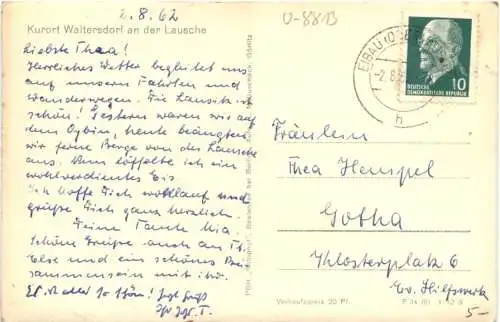 2.8.62
U-8813
Kurort Waltersdorf an der Lausche
Liebste Thea!
Herrliches Wetter begleitet uns
auf unseren Fahrten und
Wanderwegen. Die Lausitz ist
schön! Gestern waren wir auf
dem Oybin, heute beäugten
wir ferne Berge von der Lausche
aus. Nun löffelte ich ein
wohlverdientes Eis.
Ich hoffe Dich wohlauf und
grüße Dich ganz herzlich.
Deine Tante Mia.
Schöne Grüsse auch an Tt.
Else und ein schönes Bei-
sammensein mit ihr.
so schön!
EIBAU (OBERL
-2.8.
h
10
DEUTSCHE
DEMOKRATISCHE REPUBLIK
Fräulein
Thea Henspel
Gotha
Klosterplatz 6
Ev. Hilfswerk
Verkaufspreis 20 Pf.
5-